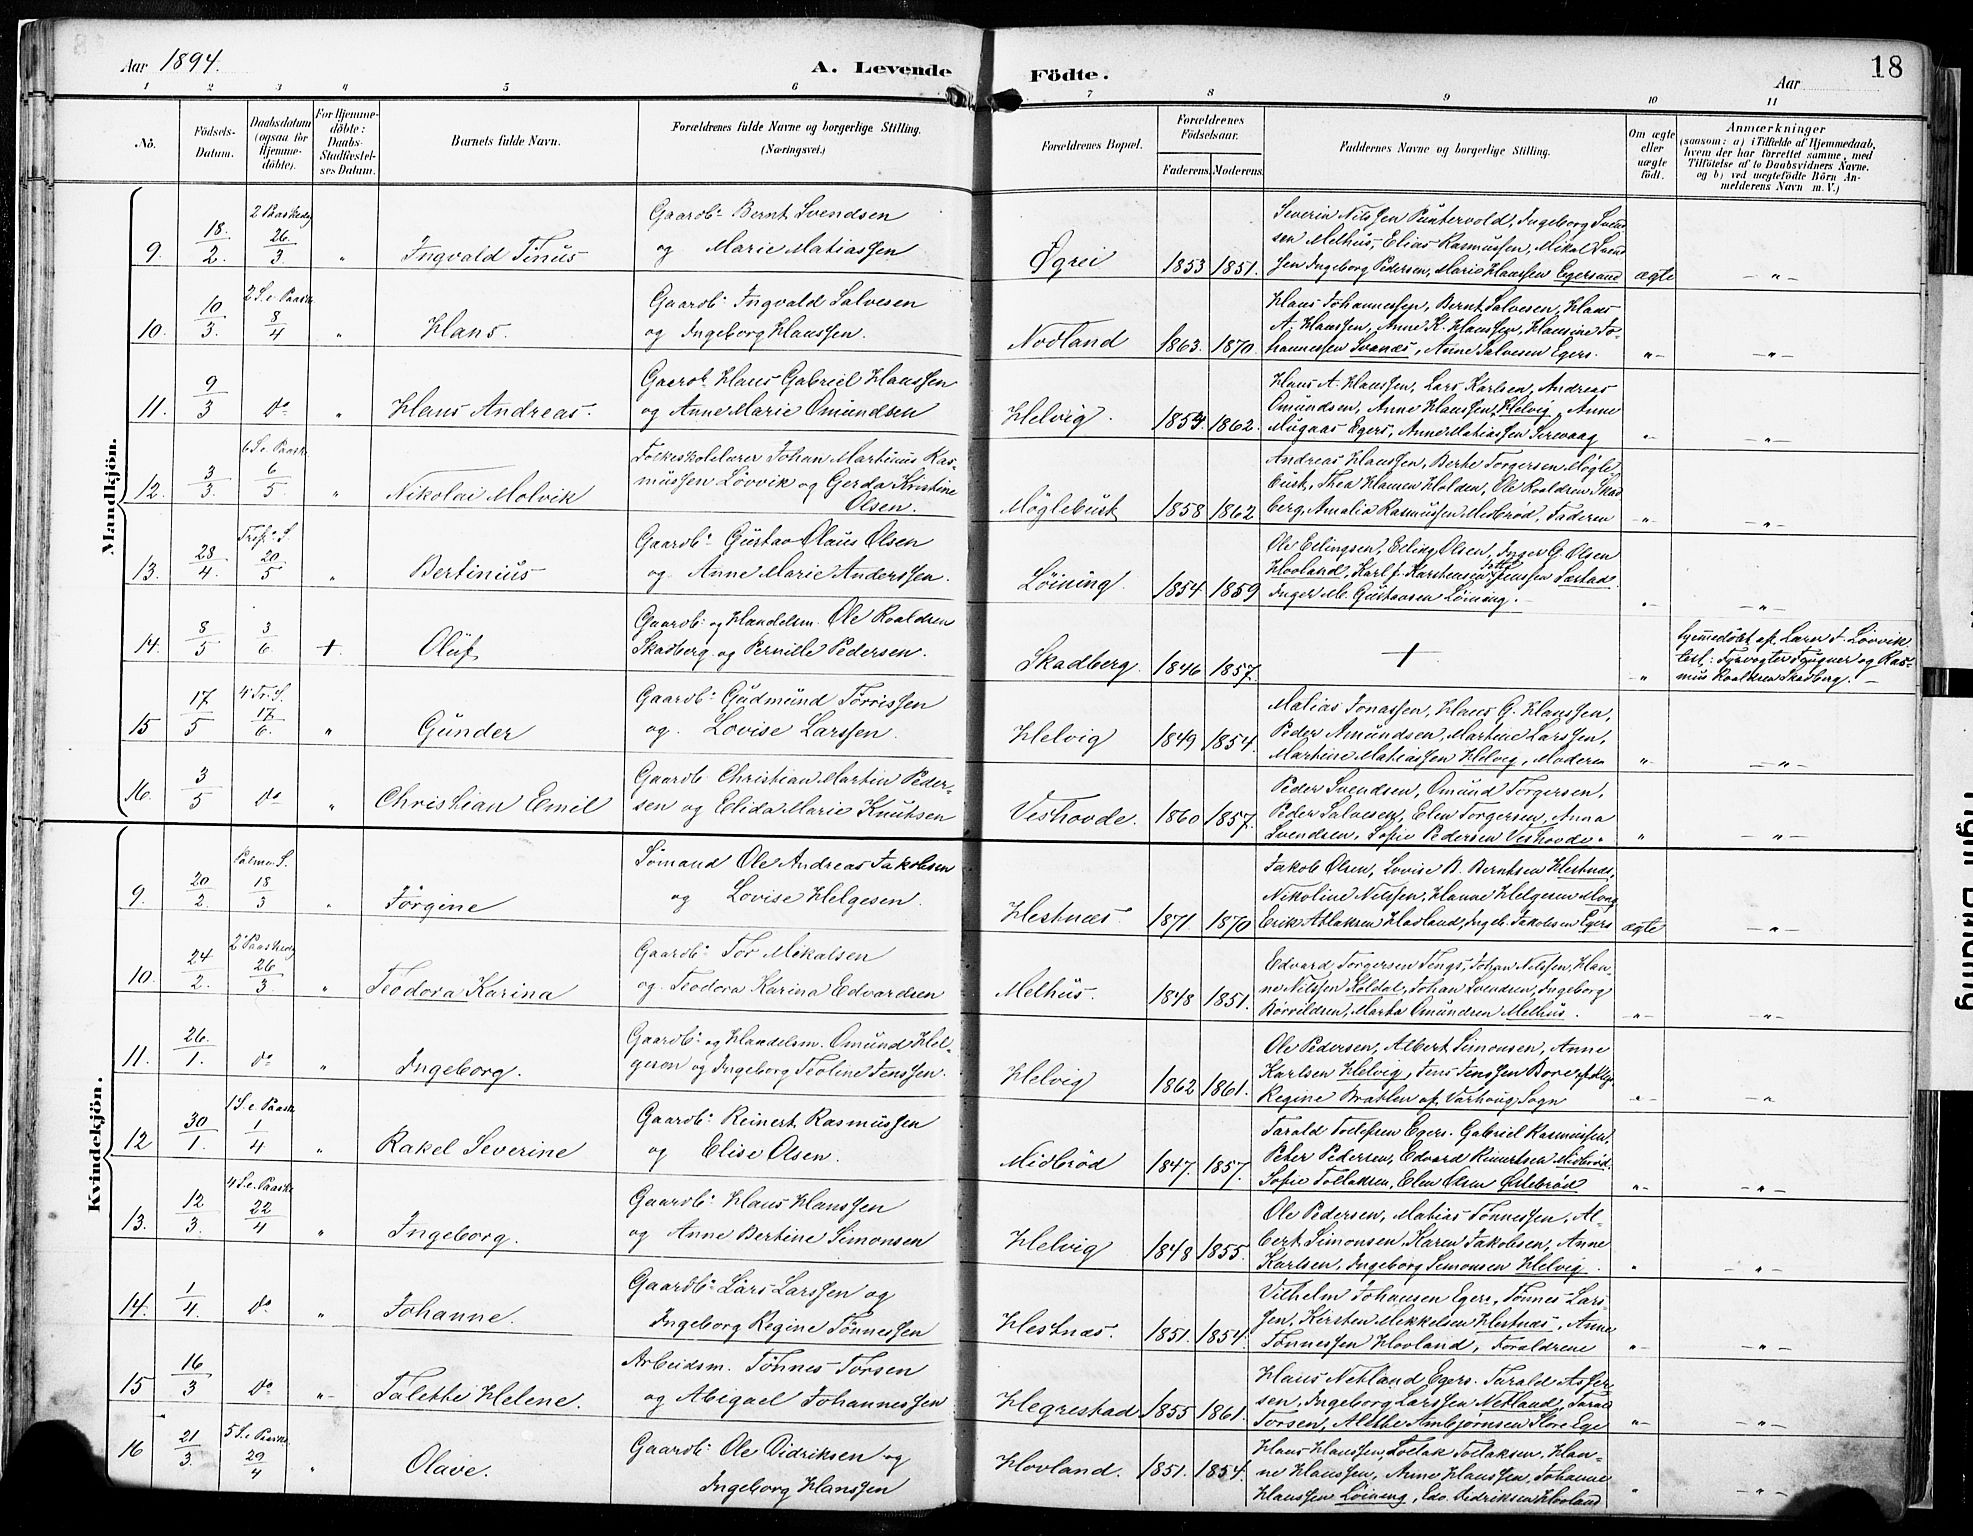 Aar 1894.
A. Levende Födte.
Aar
18
1 2 3 4 5 6 7 8 9 10 11
No.
Födsels-Datum.
Daabsdatum (ogsaa for Hjemme-döbte).
For Hjemme-döbte: Daabs-Stadfæstel-ses Datum.
Barnets fulde Navn.
Forældrenes fulde Navne og borgerlige Stilling. (Næringsvei.)
Forældrenes Bopæl.
Forældrenes Födselsaar.
Faderens. Moderens.
Faddernes Navne og borgerlige Stilling.
Om ægte eller uægte födt.
Anmærkninger
(saasom: a) i Tilfælde af Hjemmedaab,
hvem der har forrettet samme, med
Tilföielse af to Daabsvidners Navne.
og b) ved uægtefödte Börn An-
melderens Navn m. V.)
Mandkjön.
9. 18/2. 2 Paaskedg 26/3. " Ingvald Tinus
Gaardb: Bernt Svendsen
og Marie Matiassen
Øgrei 1853 1851.
Severin Nilssen Puntervold, Ingeborg Svend-
sen Melhus, Elias Rasmussen, Mikal Svend
sen Ingeborg Pedersen, Marie Hanssen Egersund
ægte — " —
10. 10/3. 2 S. e. Paaske 8/4 " Hans.
Gaardb: Ingvald Salvesen
og Ingeborg Hanssen.
Nodland 1863. 1870.
Hans Johannessen, Bernt Salvesen, Hans
A. Hanssen, Anne K. Hanssen, Hansine Jo-
hannessen Svanes, Anne Salvesen Egers.
" — — " —
11. 9/3 do " Hans Andreas.
Gaardb: Hans Gabriel Hanssen
og Anne Marie Omundsen
Helvig. 1854. 1862.
Hans A. Hanssen, Lars Karlsen, Andreas
Omundsen, Anne Hanssen, Helvig, Anne
Mugaas Egers, Anne Matiassen Sirevaag
" — — " —
12. 3/3. 6 S. e. Paaske 6/5. " Nikolai Molvik
Folkeskolelærer Johan Martinus Ras-
mussen Lövvik og Gerda Kristine
Olsen.
Möglebust 1858 1862
Andreas Hanssen, Berte Torgersen Mögle-
bust, Thea Hansen Holden, Ole Roaldsen Skad
berg, Amalia Rasmussen Midbröd, Faderen
" — — " —
13. 28/4. Tref. S. 20/5 " Bertinius
Gaardb: Gustav Olaus Olsen
og Anne Marie Anderssen.
Löining. 1854 1859
Ole Erlingsen, Erling Olsen, Inger G. Olsen
Hovland, Karl J. Karstensen Jenssen Sæstad
Inger M. Gustavsen Löining. —
" — — " —
14. 8/5 3/6 + Oluf
Gaardb: og Handelsm. Ole Roaldsen
Skadberg og Pernille Pedersen.
Skadberg. 1846 1857.
+
" — hjemmedöbt af Lærer J. Lövvik
Test: Fyrvogter Fougner og Ras-
mus Roaldsen Skadberg. —
15 17/5 4 Tr. S. 17/6. " Gunder
Gaardb: Gudmund Törrissen
og Lovise Larssen.
Helvig 1849 1854.
Matias Jonassen, Hans G. Hanssen,
Peder Amundsen, Martine Larssen,
Martine Matiassen Helvig, Moderen
" — — " —
16. 3/5 do " Christian Emil
Gaardb. Christian Martin Peder-
sen og Elida Marie Knutsen
Veshovde. 1860 1857.
Peder Svendsen, Omund Torgersen,
Peder Salvesen, Elen Torgersen, Anna
Svendsen, Sofie Pedersen Veshovde.
" — " —
Kvindekjön.
9. 20/2. Palme S. 18/3 " Jörgine
Sömand Ole Andreas Jakobsen
og Lovise Helgesen.
Hestnæs 1871. 1870
Jakob Olsen, Lovise B. Berntsen Hestnæs,
Nikoline Nilssen, Hanne Helgesen Mong
Erik Atlaksen Hovland, Ingeb. Jakobsen Egers
ægte — " —
10. 24/2. 2 Paaskedg 26/3 " Teodora Karina
Gaardb: Tor Mikalsen
og Teodora Karina Edvardsen
Melhus. 1848 1851.
Edvard Torgersen Tengs, Johan Nilssen, Han-
ne Nilssen Koldal, Johan Svendsen, Ingeborg
Börrildsen, Marta Omundsen Melhus.
" — — " —
11. 26/1. do " Ingeborg.
Gaardb: og Handelsm. Omund Hel-
gesen og Ingeborg Teoline Jenssen.
Helvig 1862 1861.
Ole Pedersen, Albert Simonsen, Anne
Karlsen Helvig, Jens Jenssen Bore af Klep
Regine Bratlen af Varhoug Sogn
" — "
12 30/1. 1 S. e. Paaske 1/4 " Rakel Severine
Gaardb: Reinert Rasmussen
og Elise Olsen.
Midbröd 1847. 1857.
Tarald Tollefsen Egers. Gabriel Rasmussen,
Peter Pedersen, Edvard Reinertsen Midbröd.
Sofie Tollaksen, Elen Olsen Östebröd
" — — " —
13. 12/3. 4 S. e. Paaske 22/4 " Ingeborg.
Gaardb: Hans Hanssen
og Anne Bertine Simonsen
Helvig 1848 1855.
Ole Pedersen, Matias Tönnessen, Al-
bert Simonsen, Karen Jakobsen, Anne
Karlsen, Ingeborg Simonsen Helvig.
" — " —
14. 1/4. do " Johanne.
Gaardb: Lars Larssen og
Ingeborg Regine Tönnessen
Hestnæs. 1851. 1854.
Vilhelm Johansen Egers, Tönnes Lars-
sen, Kirsten Mikkelsen Hestnæs, Anne
Tönnessen Hovland, Forældrene
" — — " —
15 16/3 do " — Talette Helene.
Arbeidsm. Tönnes Torsen
og Abigael Johannessen
Hegrestad 1855 1861.
Hans Netland Egers. Tarald Asser-
sen, Ingeborg Larssen Netland, Tarald
Torsen, Alethe Ambjörnsen Flore Ege
" — — " —
16 21/3. 5 S. e. Paaske 29/4 " Olave.
Gaardb: Ole Didriksen og
Ingeborg Hanssen
Hovland. 1851. 1854.
Hans Hanssen, Tollak Tollaksen, Han-
ne Hanssen, Anne Hanssen, Johanne
Hanssen Löining, Edv. Didriksen Hovland
" — " —